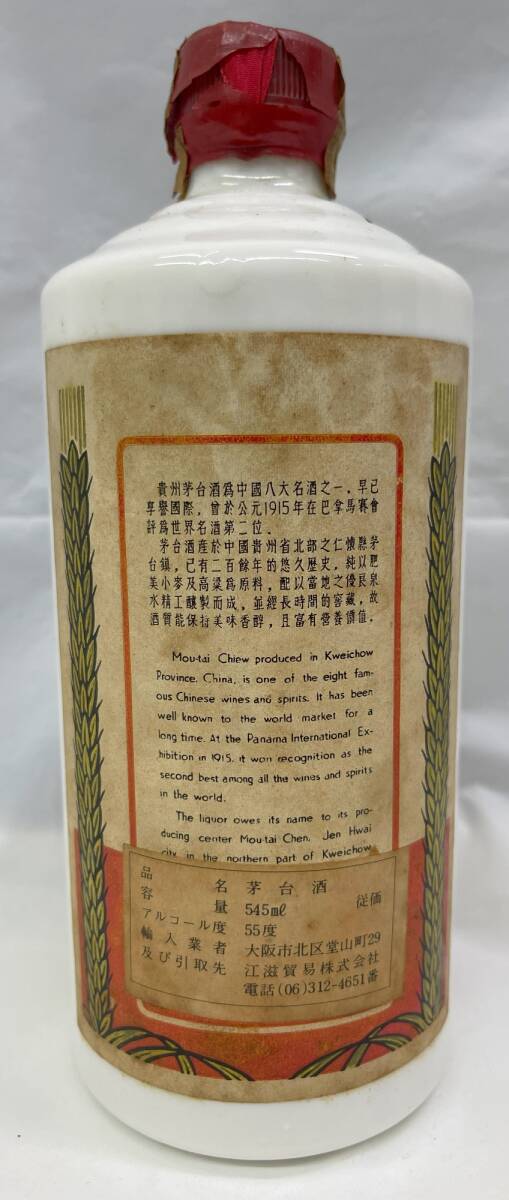 貴州茅台酒爲中國八大名酒之一，早已
享譽國際，曾於公元1915年在巴拿馬賽會
評爲世界名酒第二位。
茅台酒產於中國貴州省北部之仁懷縣茅
台鎮，已有二百餘年的悠久歷史，純以肥
美小麥及高粱爲原料，配以當地之優良泉
水精工釀製而成，並經長時間的窖藏，故
酒質能保持美味香醇，且富有營養價值。
Mou-tai Chiew produced in Kweichow
Province, China, is one of the eight fam-
ous Chinese wines and spirits. It has been
well known to the world market for a
long time. At the Panama International Ex-
hibition in 1915, it won recognition as the
second best among all the wines and spirits
in the world.
The liquor owes its name to its pro-
ducing center Mou-tai Chen, Jen Hwai
city, in the northern part of Kweichow
品名 茅台酒
容量 545ml 従価
アルコール度 55度
輸入業者 大阪市北区堂山町29
及び引取先 江滋貿易株式会社
電話(06)312-4651番